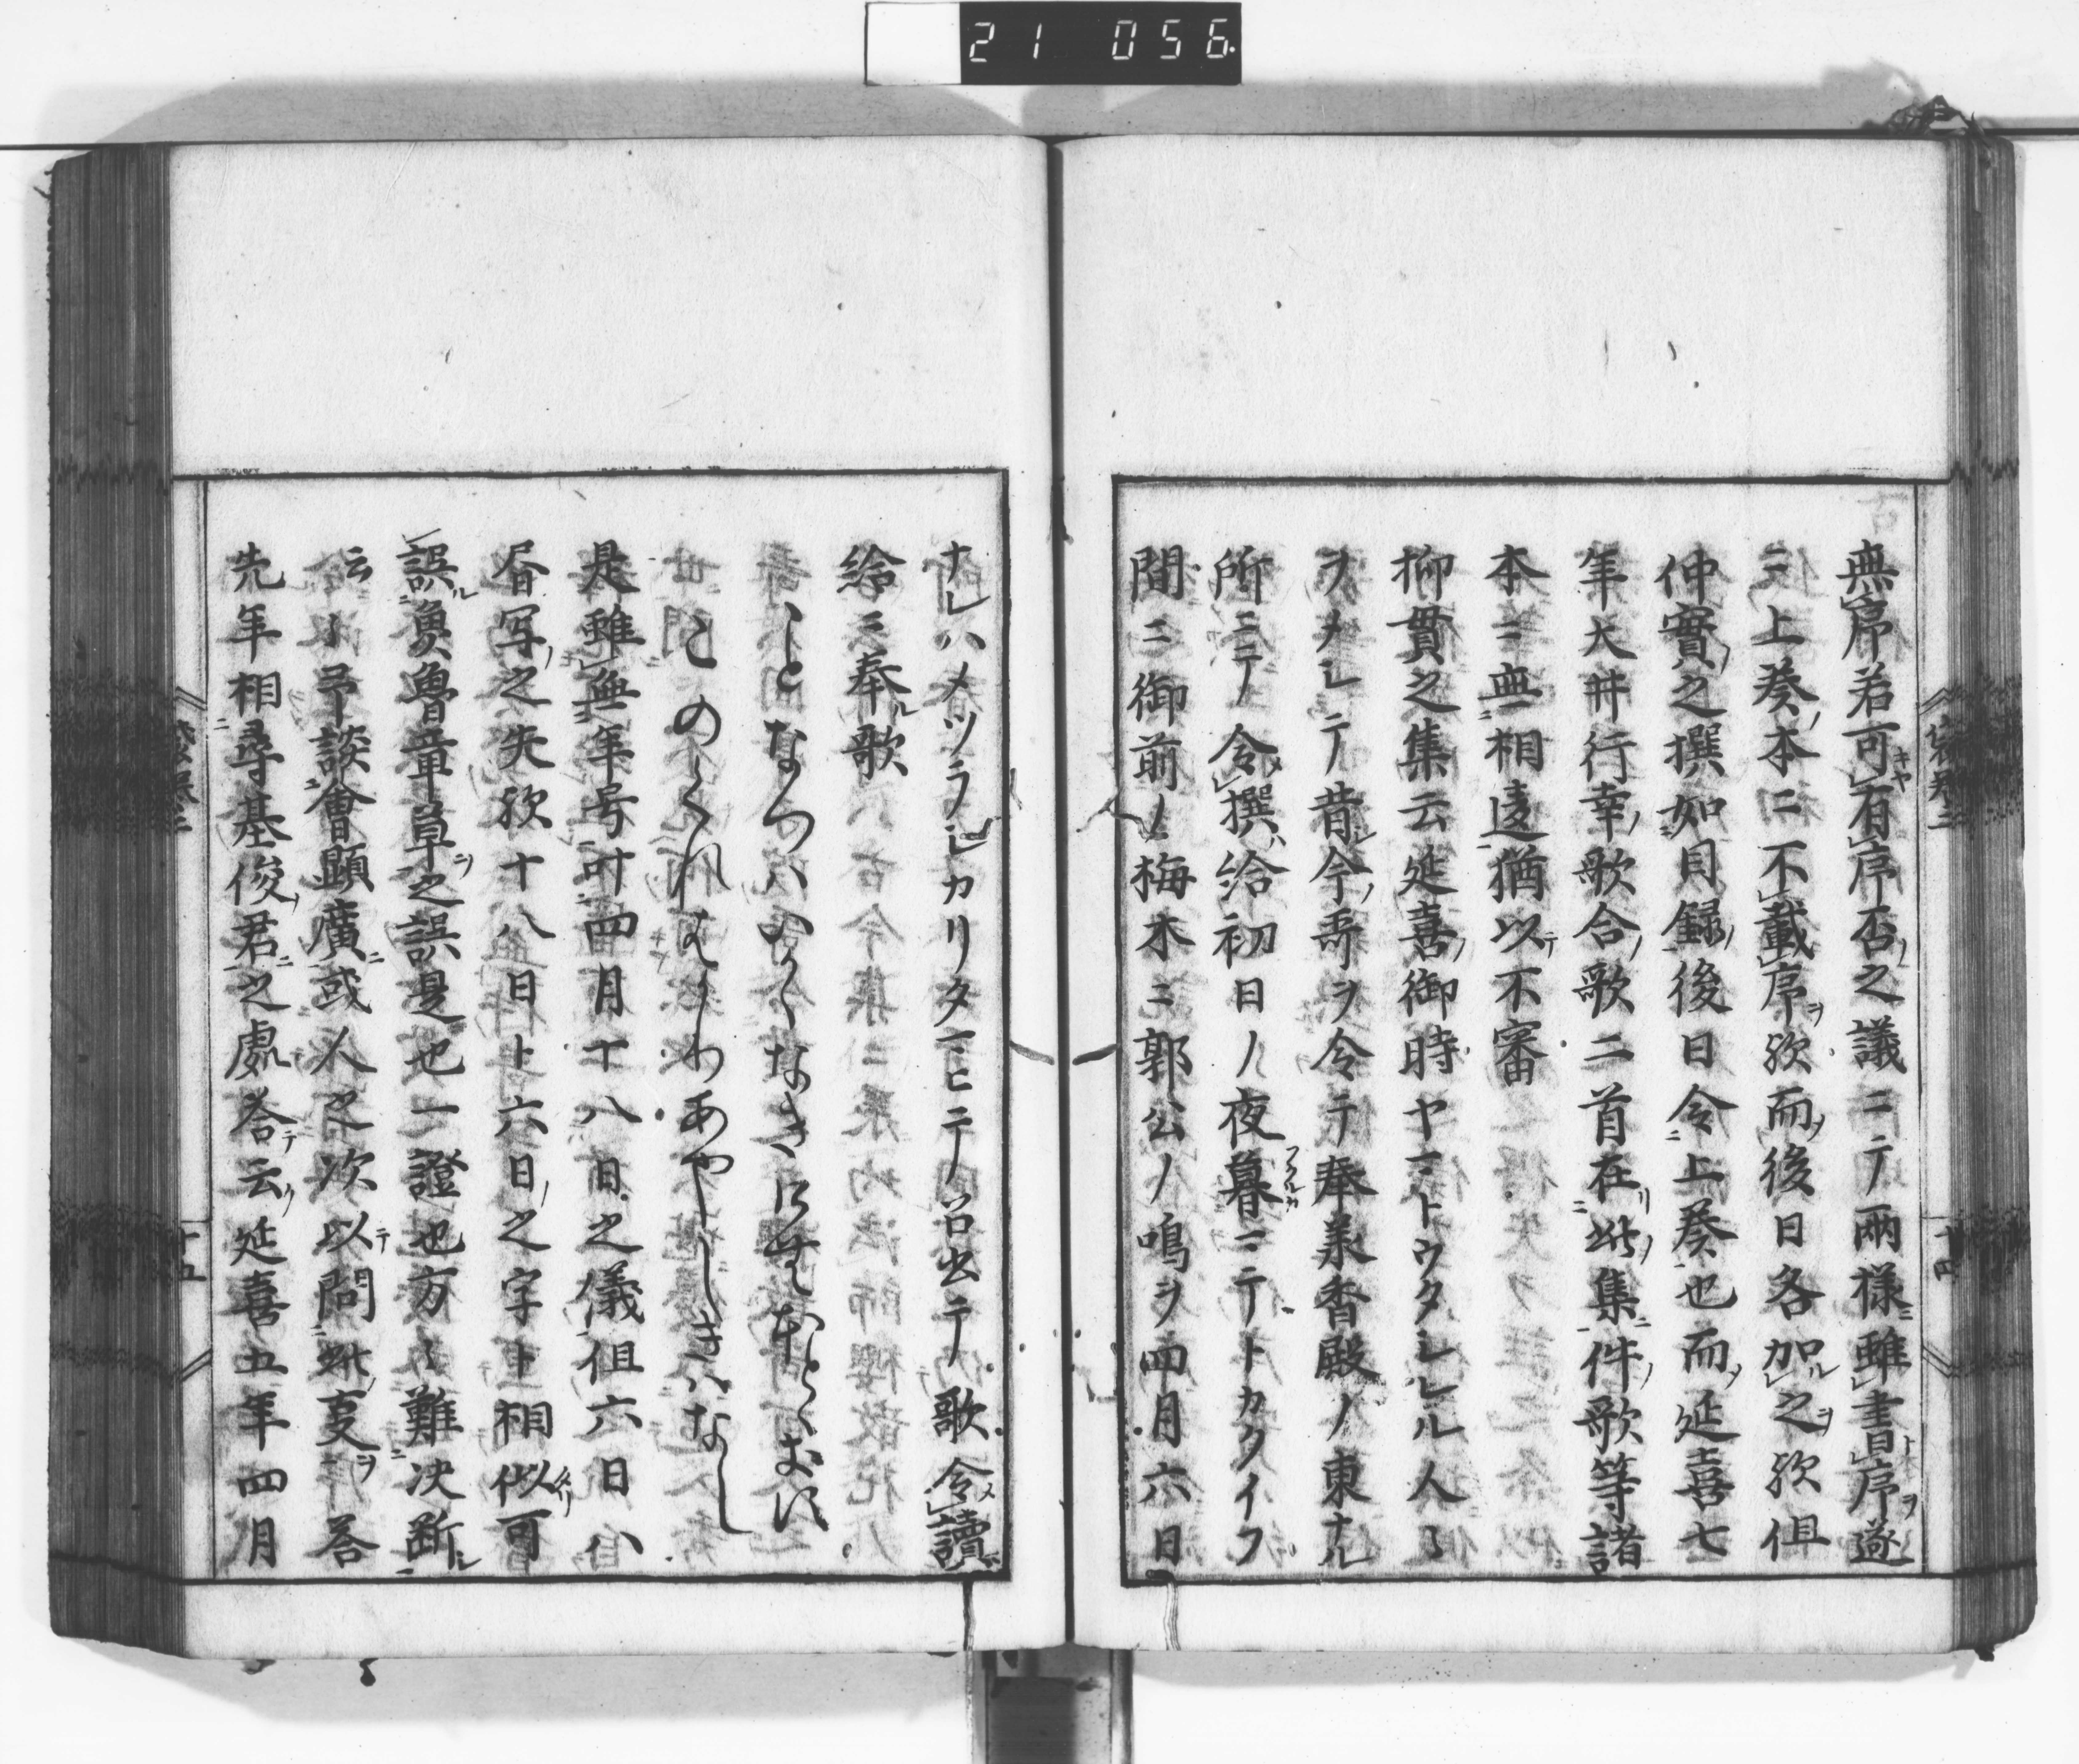 21 056
無序若可有序否之議ニテ両様雖書序遂
ニ上奏ノ本ニ不載序ヲ欤而後日各加之欤但
仲實之撰如目録後日令上奏也而延喜七
年大井行幸ノ歌合ノ歌二首在此集件歌等諸
本ニ無相違猶以不審
抑貫之集云延喜御時ヤマトウタシレル人〻
ヲメシテ昔今ノ哥ヲ令テ奉承香殿ノ東ナル
所ニテ令撰給初日ノ夜暮ニテトカクイフ
間ニ御前ノ梅木ニ郭公ノ鳴ヲ四月六日
ナレハメツラシカリタマヒテ召出テ歌令讀
給ニ奉歌
ことなつはいかゝなきけむほとゝきす
このくれはかりあやしきはなし
是雖無年号叶四月十八日之儀但六日ハ
昼写之失欤十八日ト六日之字ト相似可
誤魚魯章草之誤是也一證也方〻難決断
云〻予談會顕廣或人之次以問此㕝ヲ答
先年相尋基俊君之處答云延喜五年四月
十四
十五